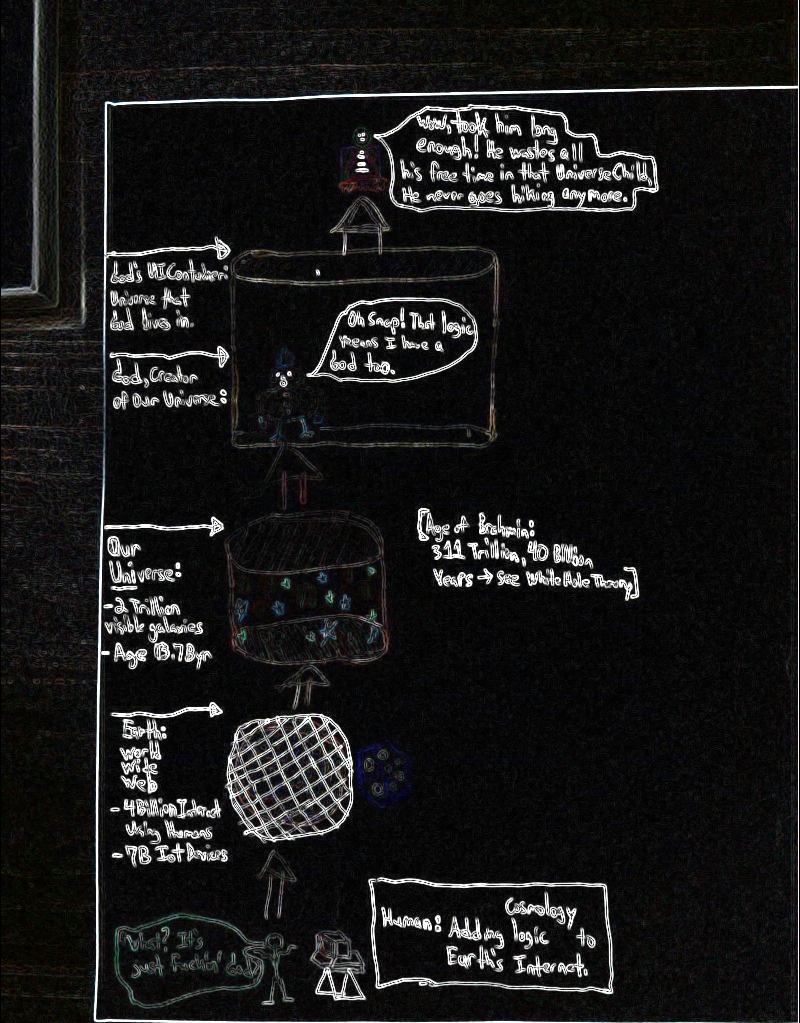 Wow, took him long
enough! He wastes all
his free time in that UniverseChild,
He never goes hiking anymore.
God's UI Container:
Universe that
God lives in.
Oh Snap! That logic
means I have a
God too.
God, Creator
of Our Universe:
[Age of Brahmin:
311 Trillion, 40 Billion
Years → See White Hole Theory]
Our
Universe:
-2 Trillion
visible galaxies
- Age 13.7Byr
Earth:
world
wide
web
- 4 Billion Internet
Using Humans
- 7B IoT Devices
Cosmology
Human: Adding logic to
Earth's Internet.
What? It's
just Fuckin' God